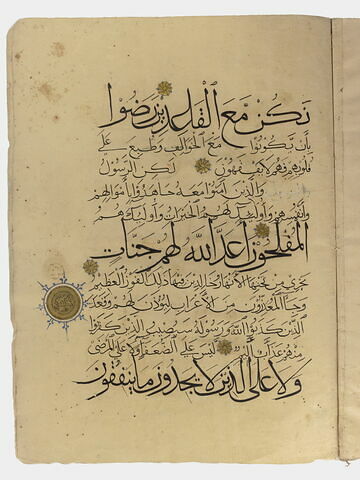 نكن مع القاعدين رضوا
بأن يكونوا مع الخوالف وطبع على
قلوبهم فهم لا يفقهون لكن الرسول
والذين آمنوا معه جاهدوا بأموالهم
وأنفسهم وأولئك لهم الخيرات وأولئك هم
المفلحون أعد الله لهم جنات
تجري من تحتها الأنهار خالدين فيها ذلك الفوز العظيم
وجاء المعذرون من الأعراب ليؤذن لهم وقعد
الذين كذبوا الله ورسوله سيصيب الذين كفروا
منهم عذاب أليم ليس على الضعفاء ولا على المرضى
ولا على الذين لا يجدون ما ينفقون